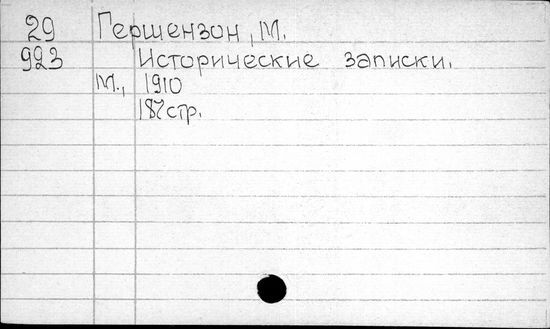 29 Гершензон, М.
923 Исторические записки.
М., 1910
187 стр.